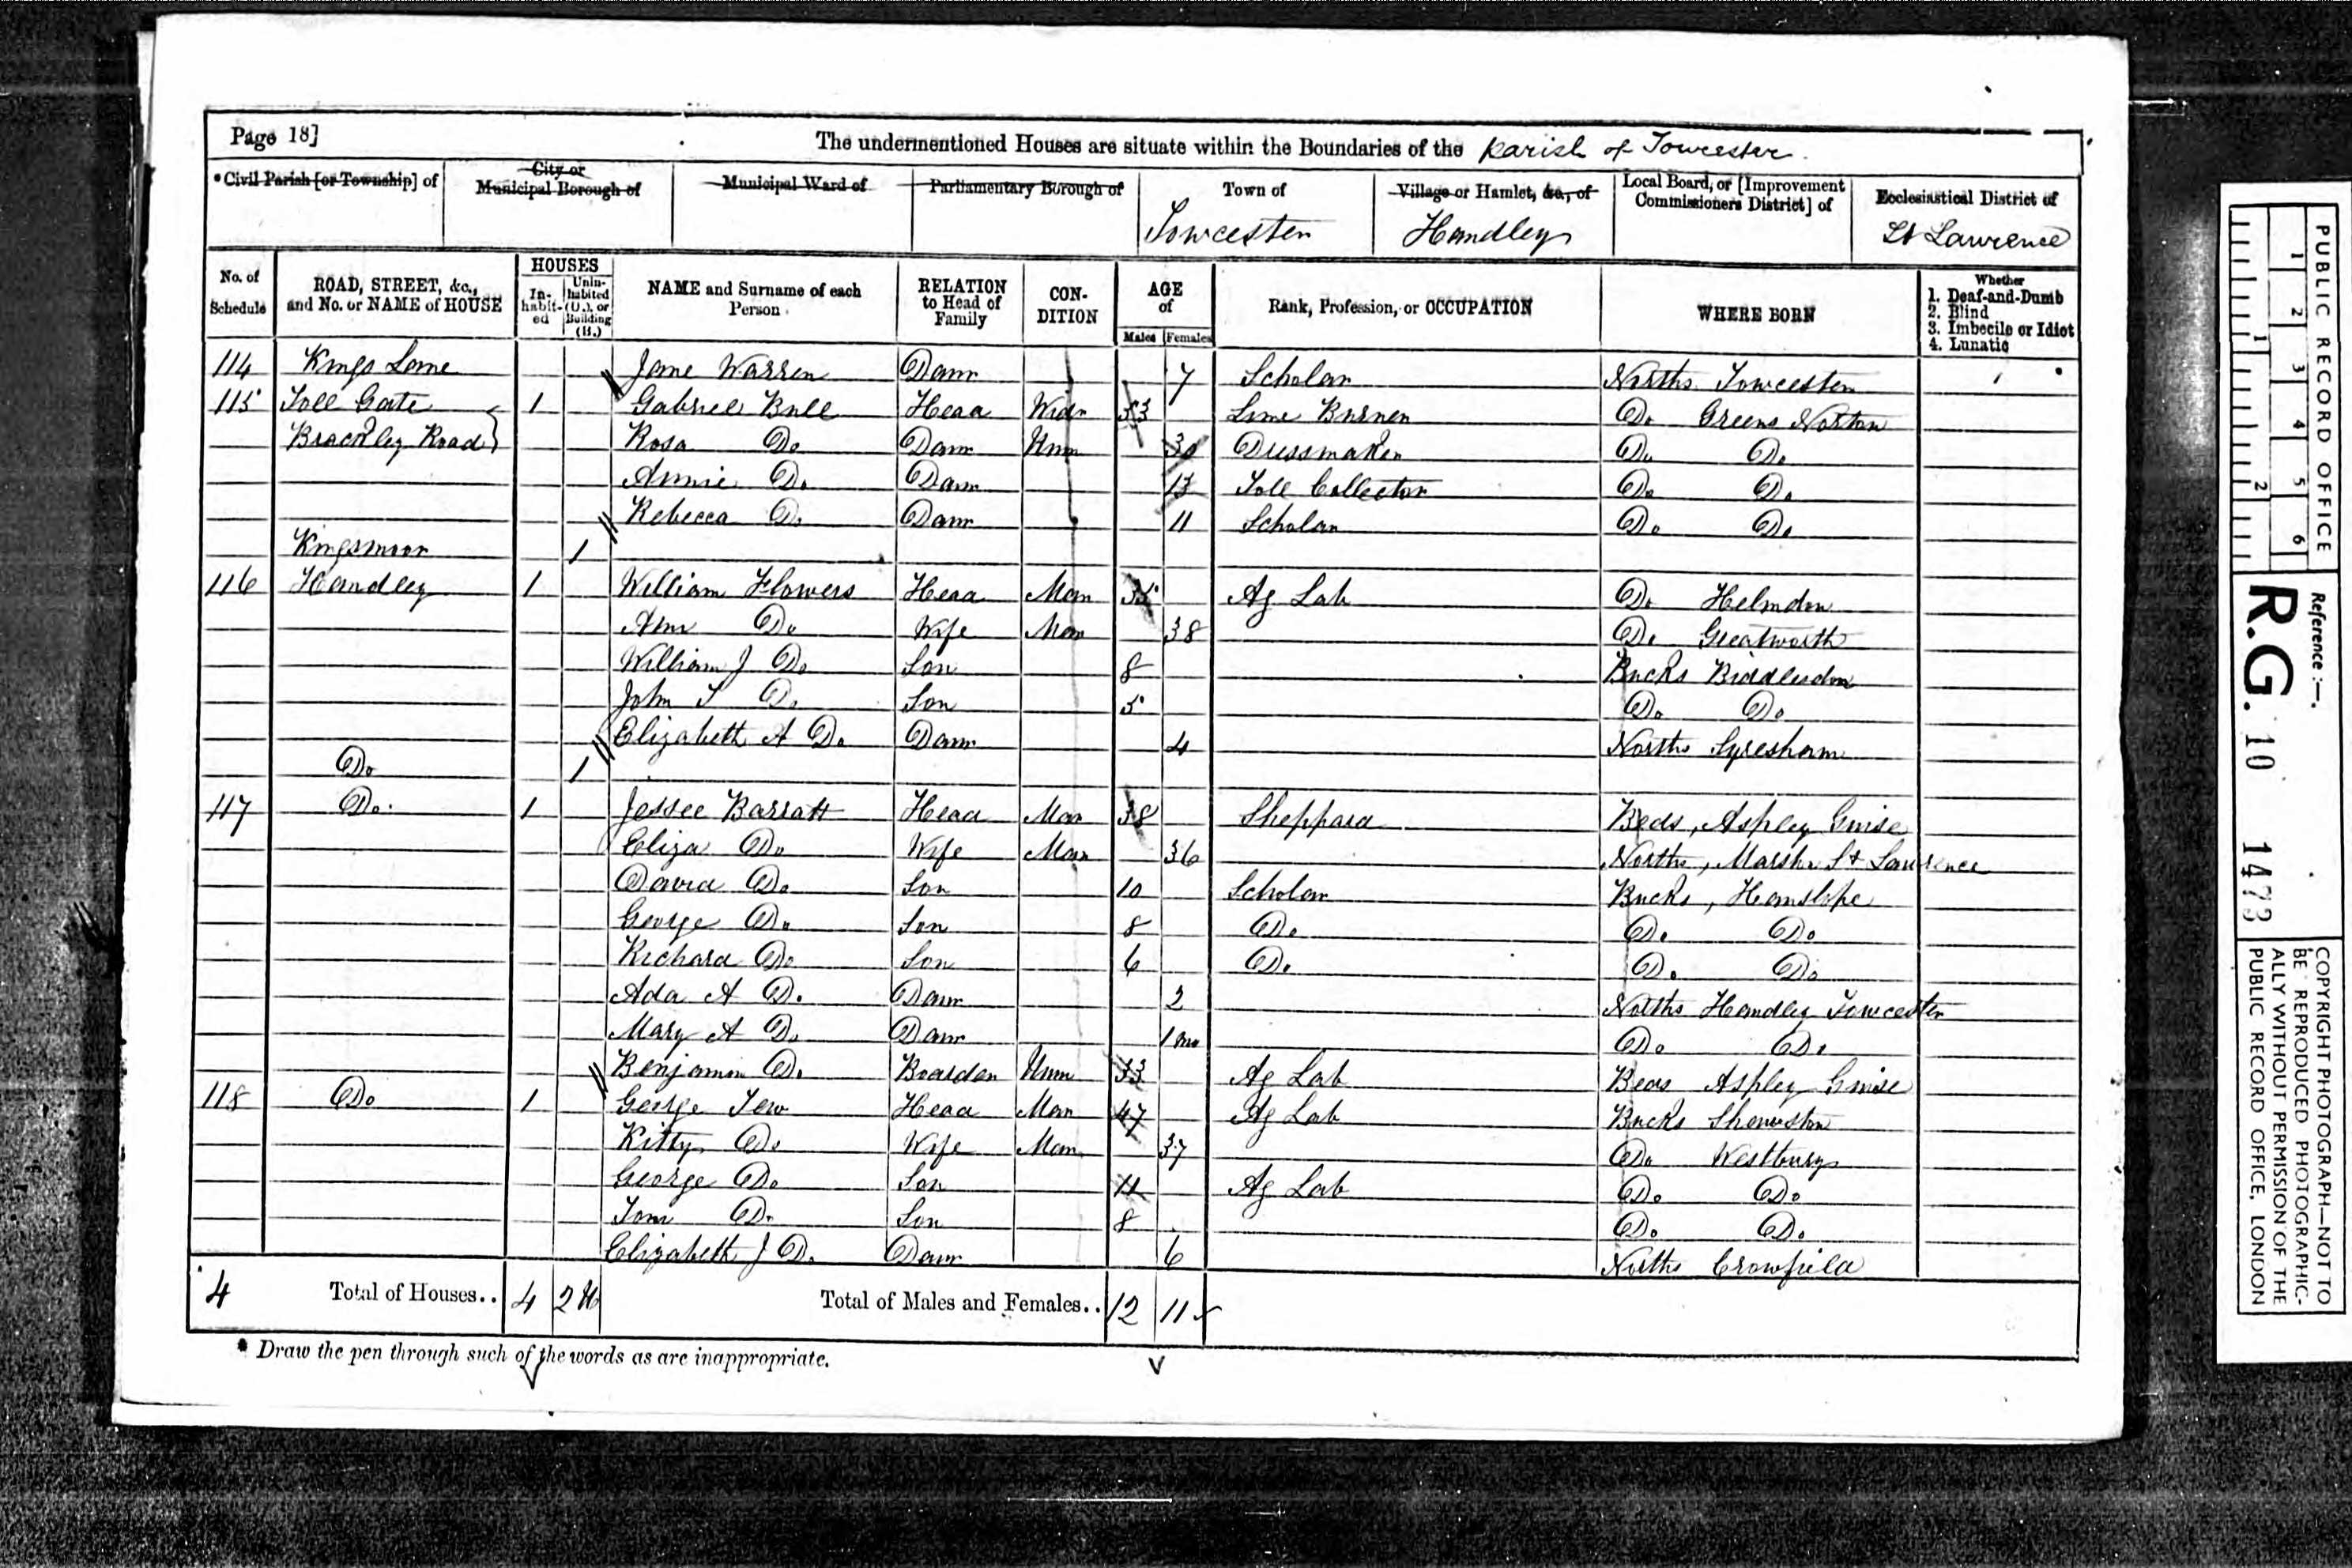 Page 18]
The undermentioned Houses are situate within the Boundaries of the Parish of Towcester.
*Civil Parish [or Township] of
City or Municipal Borough of
Municipal Ward of
Parliamentary Borough of
Town of
Towcester
Village or Hamlet, &c., of
Handley
Local Board, or [Improvement Commissioners District] of
Ecclesiastical District of
St Lawrence
No. of Schedule
ROAD, STREET, &c., and No. or NAME of HOUSE
HOUSES
Inhabited
Uninhabited (U.), or Building (B.)
NAME and Surname of each Person
RELATION to Head of Family
CONDITION
AGE of
Males Females
Rank, Profession, or OCCUPATION
WHERE BORN
Whether
1. Deaf-and-Dumb
2. Blind
3. Imbecile or Idiot
4. Lunatic
114 Kings Lane Jane Warren Daur 7 Scholar Norths Towcester
115 Toll Gate 1 Gabriel Bull Head Widr 53 Lime Burner Do Greens Norton
Brackley Road Rosa Do Daur Unm 30 Dressmaker Do Do
Annie Do Daur 13 Toll Collector Do Do
Rebecca Do Daur 11 Scholar Do Do
Kingsmoor 1
116 Handley 1 William Flowers Head Mar 35 Ag Lab Do Helmdon
Ann Do Wife Mar 38 Do Greatworth
William J Do Son 8 Bucks Biddlesdon
John T Do Son 5 Do Do
Elizabeth A Do Daur 4 Norths Syresham
Do 1
117 Do 1 Jessee Barratt Head Mar 38 Sheppard Beds, Aspley Guise
Eliza Do Wife Mar 36 Norths, Marston St Lawrence
David Do Son 10 Scholar Bucks, Hanslope
George Do Son 8 Do Do Do
Richard Do Son 6 Do Do Do
Ada A Do Daur 2 Norths Handley Towcester
Mary A Do Daur 1 mo Do Do
Benjamin Do Boarder Unm 33 Ag Lab Beds Aspley Guise
118 Do 1 George Tew Head Mar 47 Ag Lab Bucks
Kitty Do Wife Mar 37 Do Westbury
George Do Son 11 Ag Lab Do Do
Tom Do Son 8 Do Do
Elizabeth J Do Daur 6 Norths Crowfield
4 Total of Houses.. 4 2 U Total of Males and Females.. 12 11
* Draw the pen through such of the words as are inappropriate.
PUBLIC RECORD OFFICE
1 2 3 4 5 6
1 2
Reference :—
R.G. 10 1473
COPYRIGHT PHOTOGRAPH—NOT TO
BE REPRODUCED PHOTOGRAPHIC-
ALLY WITHOUT PERMISSION OF THE
PUBLIC RECORD OFFICE, LONDON